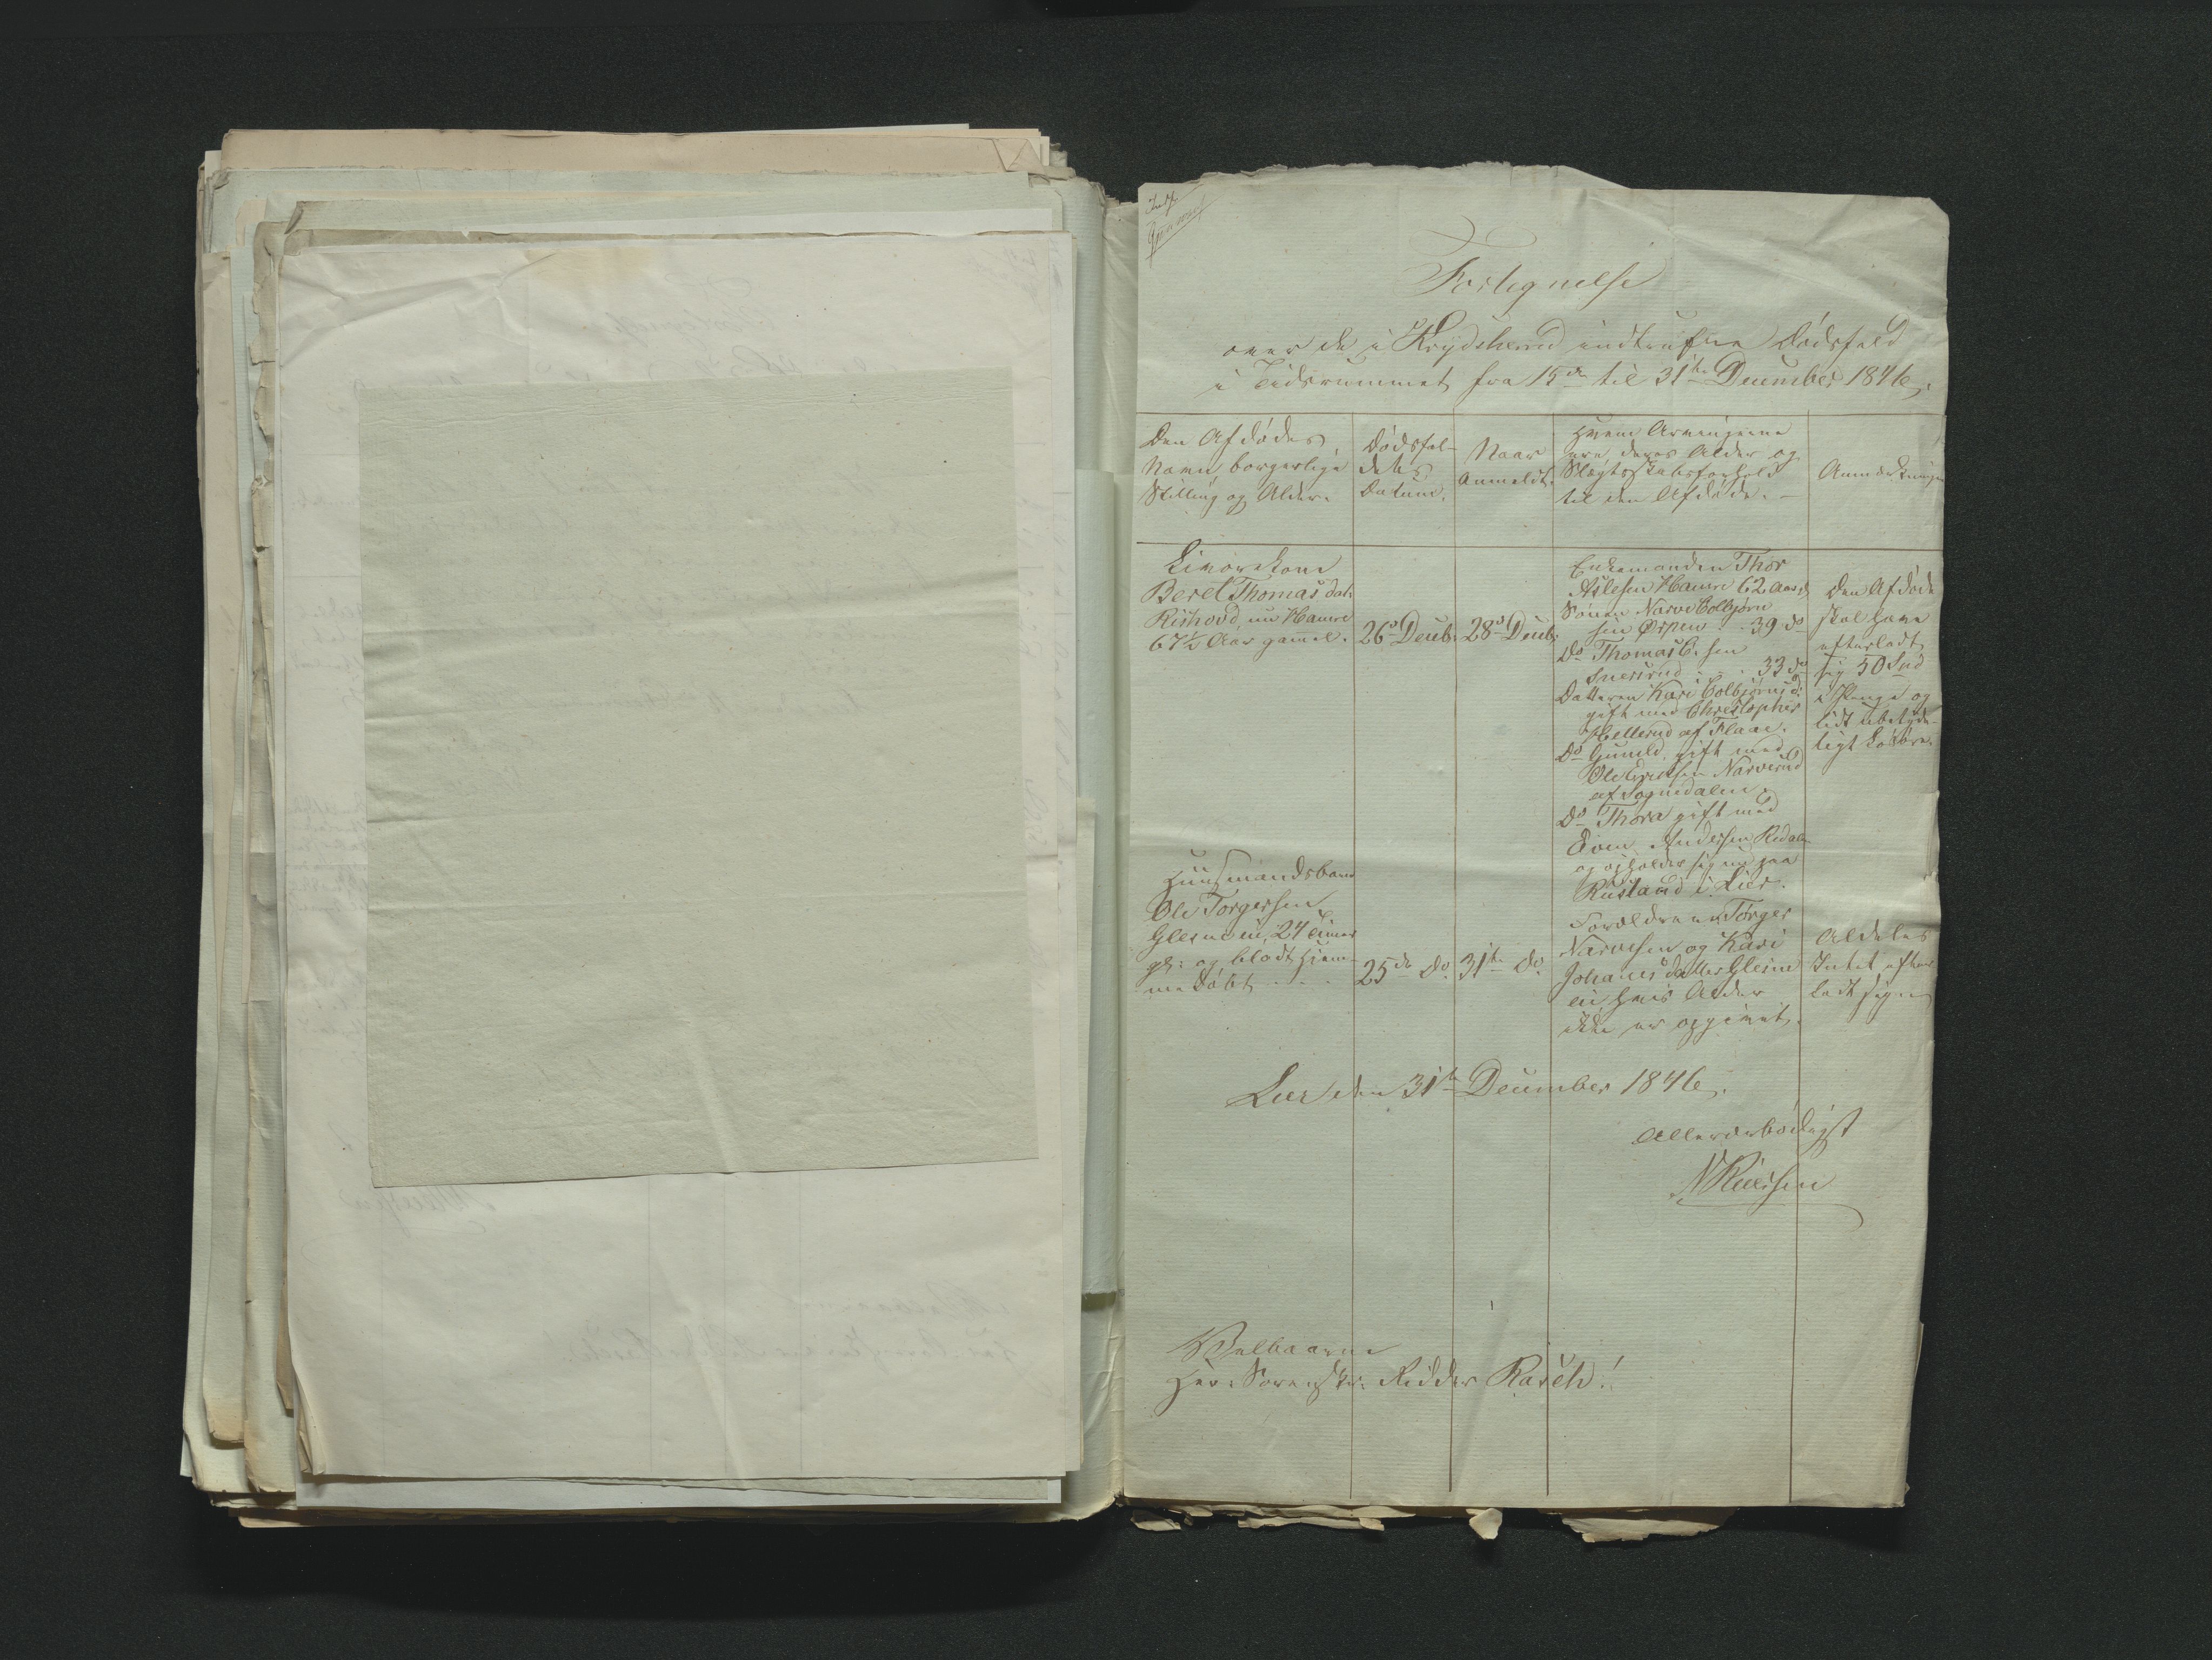 Fortegnelse
over de i Krydsherred indtrufne Dødsfald
i Tidsrummet fra 15de til 31te December 1846.
Den Afdødes
Navn, borgerlige
Stilling og Alder.
Dødsfal-
dets
Datum.
Naar
Anmeldt.
Hvem Arvingerne
ere, deres Alder og
Slægtsskabsforhold
til den Afdøde. –
Anmærkninger
Livørekone
Beret Thomasdat:
Rishovd, nu Hamre
67½ Aar gammel.
26de Decmb.
28de Decmb.
Enkemanden Thor
Aslesen Hamre 62 Aar,
Sønnen Narve Colbjørn
sen Ørpen . . 39 do
Do Thomas C. sen
Snersrud . . . 33 do
Datteren Kari Colbjørnsd:
gift med Christopher
Hellerud af Flaae.
Do Gunild, gift med
Ole Erichsen Narverud
af Sognedalen,
Do Thora gift med
Sven Andersen Rodal
og opholder sig nu paa
Rustand i Lier.
Den Afdøde
skal have
efterladt
sig 50 Spd
i Penge og
lidt ubetyde-
ligt Løsøre.
Huusmandsbarn
Ole Torgersen
Glesne ei, 24 Timer
gl: og blodt hjem-
me døbt . . .
25de do
31te do
Forældrene Torger
Narvesen og Kari
Johannesdatter Glesne
ei, hvis Alder
ikke er opgivet.
Aldeles
Intet efter
ladt sig
Lier den 31te December 1846.
Allerærbødigst
N Ruersen
Velbaarne
Hr: Sorenskr: Ridder Rasch!